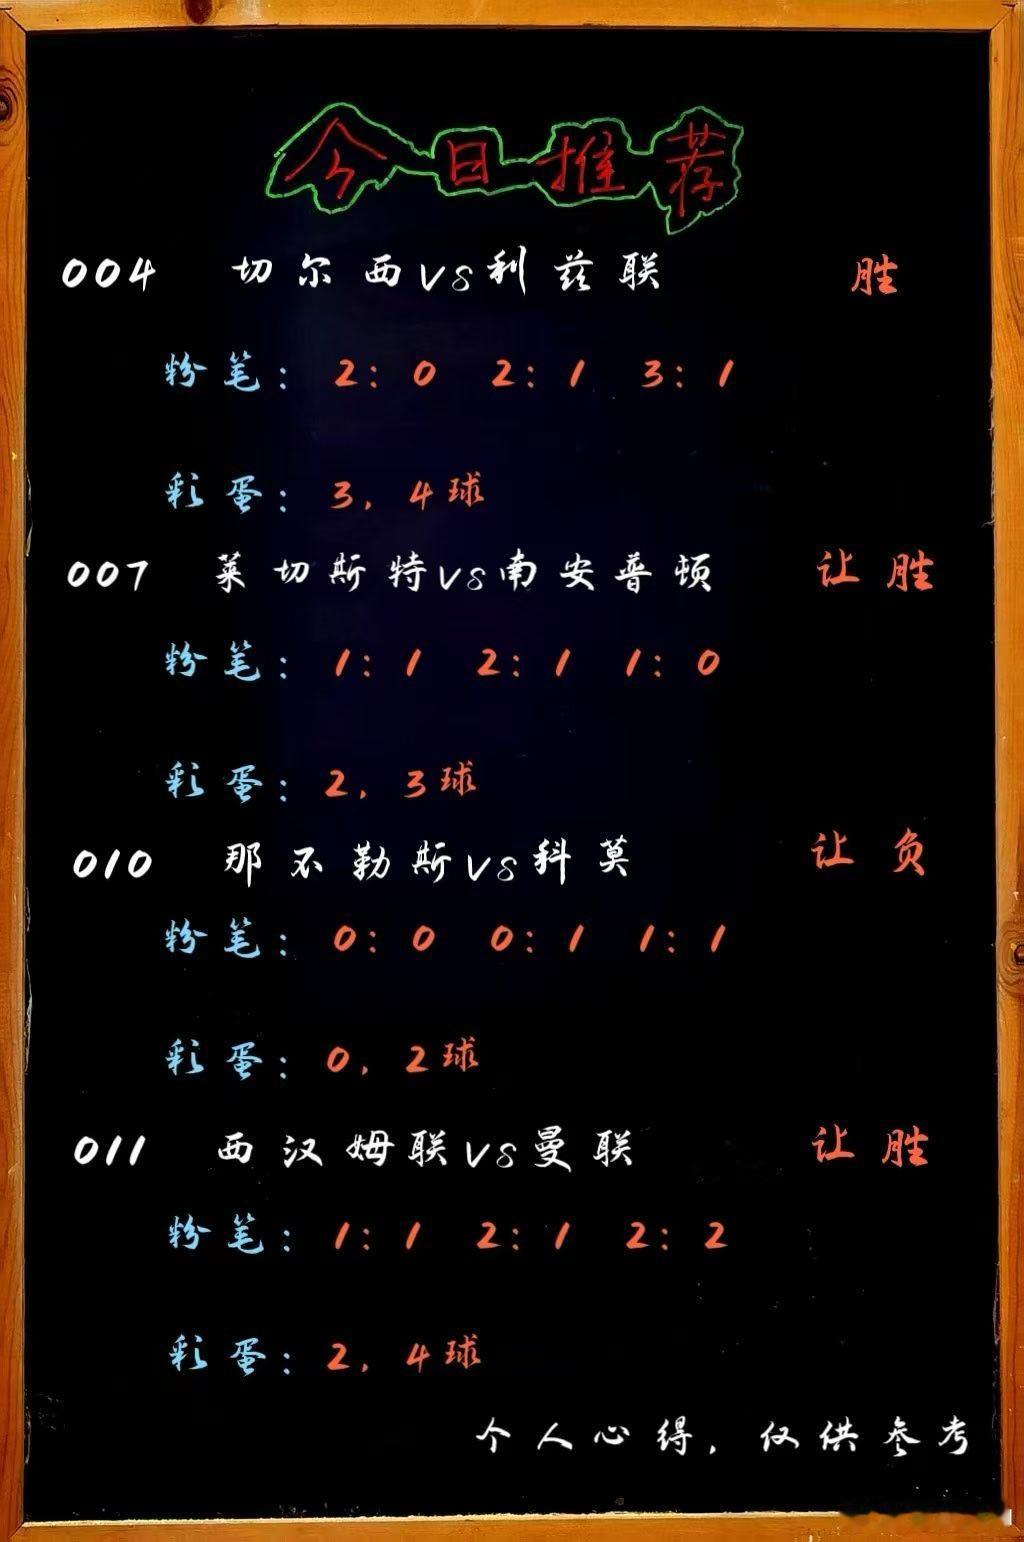 今日推荐
004 切尔西VS利兹联 胜
粉笔：2：0 2：1 3：1
彩蛋：3，4球
007 莱切斯特VS南安普顿 让胜
粉笔：1：1 2：1 1：0
彩蛋：2，3球
010 那不勒斯VS科莫 让负
粉笔：0：0 0：1 1：1
彩蛋：0，2球
011 西汉姆联VS曼联 让胜
粉笔：1：1 2：1 2：2
彩蛋：2，4球
个人心得，仅供参考